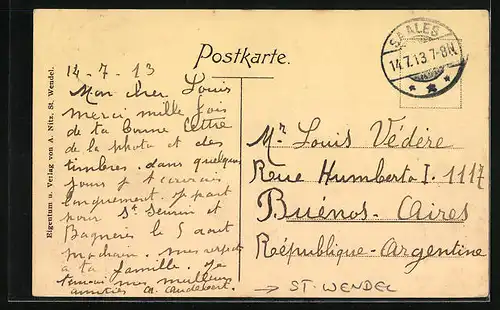 Postkarte.
SAALES
14.7.13 7-8N
Eigentum u. Verlag von A. Nitz, St. Wendel.
14-7-13
Mon cher Louis
merci mille fois
de ta bonne lettre
de la photo et des
timbres. dans quelques
jours je t'écrirais
longuement. Je part
pour St Seurin et
Bagneris le 5 aout
prochain. mes respects
à ta famille. Je
t'envoi mes meilleurs
amitiés
Mr Louis Védère
Rue Humberto I. 1117
Buénos-Aires
République-Argentine
→ ST-WENDEL